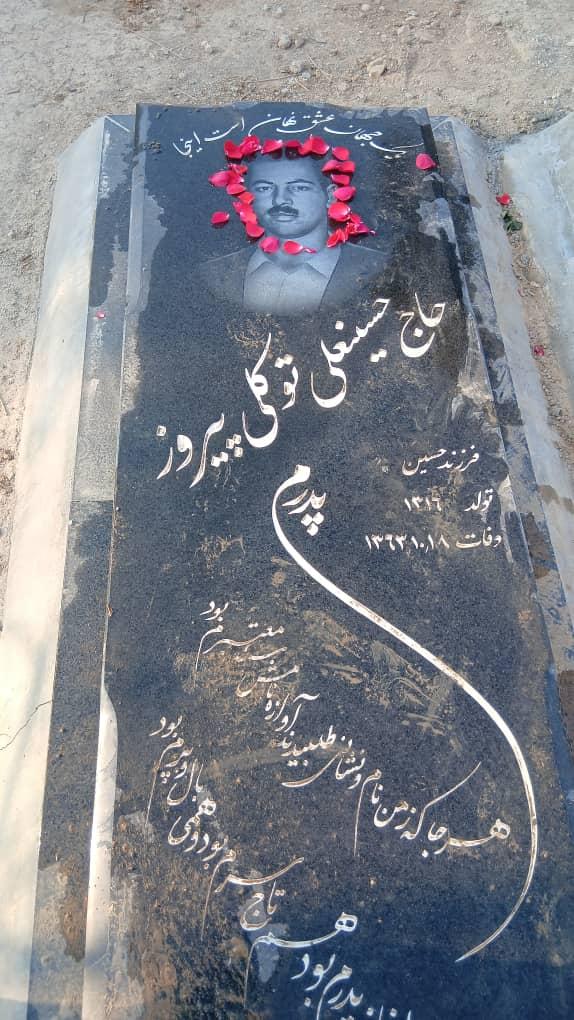 یک جهان عشق نهان است اینجا
حاج حسینعلی توکلی پیروز
فرزند حسین
تولد ۱۳۱۶
وفات ۱۳۶۳.۱۰.۱۸
پدرم
هر جا که ز من نام و نشانی طلبیدند
آوازه
معتبرم بود
هم تاج سرم بود و همی بال و پرم بود
پدرم بود